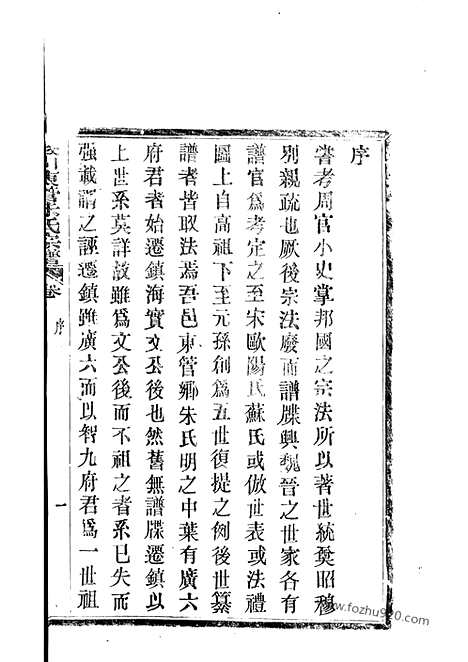 序
嘗考周官小史掌邦國之宗法所以著世統奠昭穆
別親疏也厥後宗法廢而譜牒興魏晉之世家各有
譜官爲考定之至宋歐陽氏蘇氏或倣世表或法禮
圖上自高祖下至元孫創爲五世復提之例後世纂
譜者皆取法焉吾邑東管鄉朱氏明之中葉有廣六
府君者始遷鎮海實文公後也然舊無譜牒遷鎮以
上世系莫詳故雖爲文公後而不祖之者系已失而
強載謂之誣遷鎮雖廣六而以智九府君爲一世祖
氏宗譜
卷
序
一
www.fozhu920.com